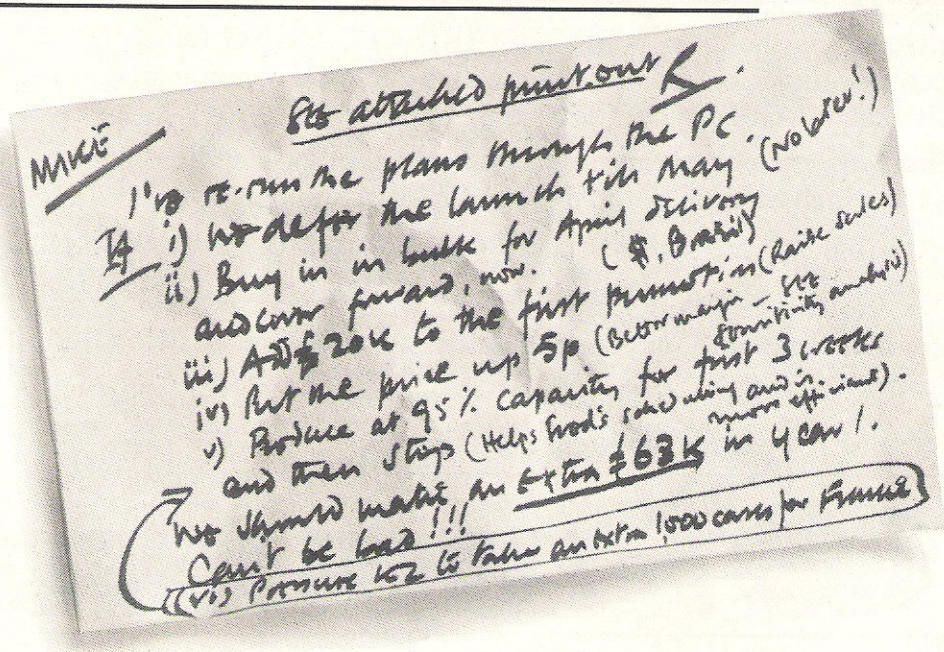 MIKE
See attached print.out R.
I've re-run the plans through the PC.
If i) we defer the launch till May. (No later!)
ii) Buy in in bulk for April delivery
and cover forward, now. ($, Brazil)
iii) Add £20K to the first promotion (Raise sales)
iv) Put the price up 5p (Better margin – see
sensitivity analysis)
v) Produce at 95% capacity for first 3 weeks
and then stop (Helps Fred's scheduling and is
more efficient).
we should make an extra £63K in year 1.
Can't be bad!!!
(vi) Pressure to take an extra 1,500 cases for France